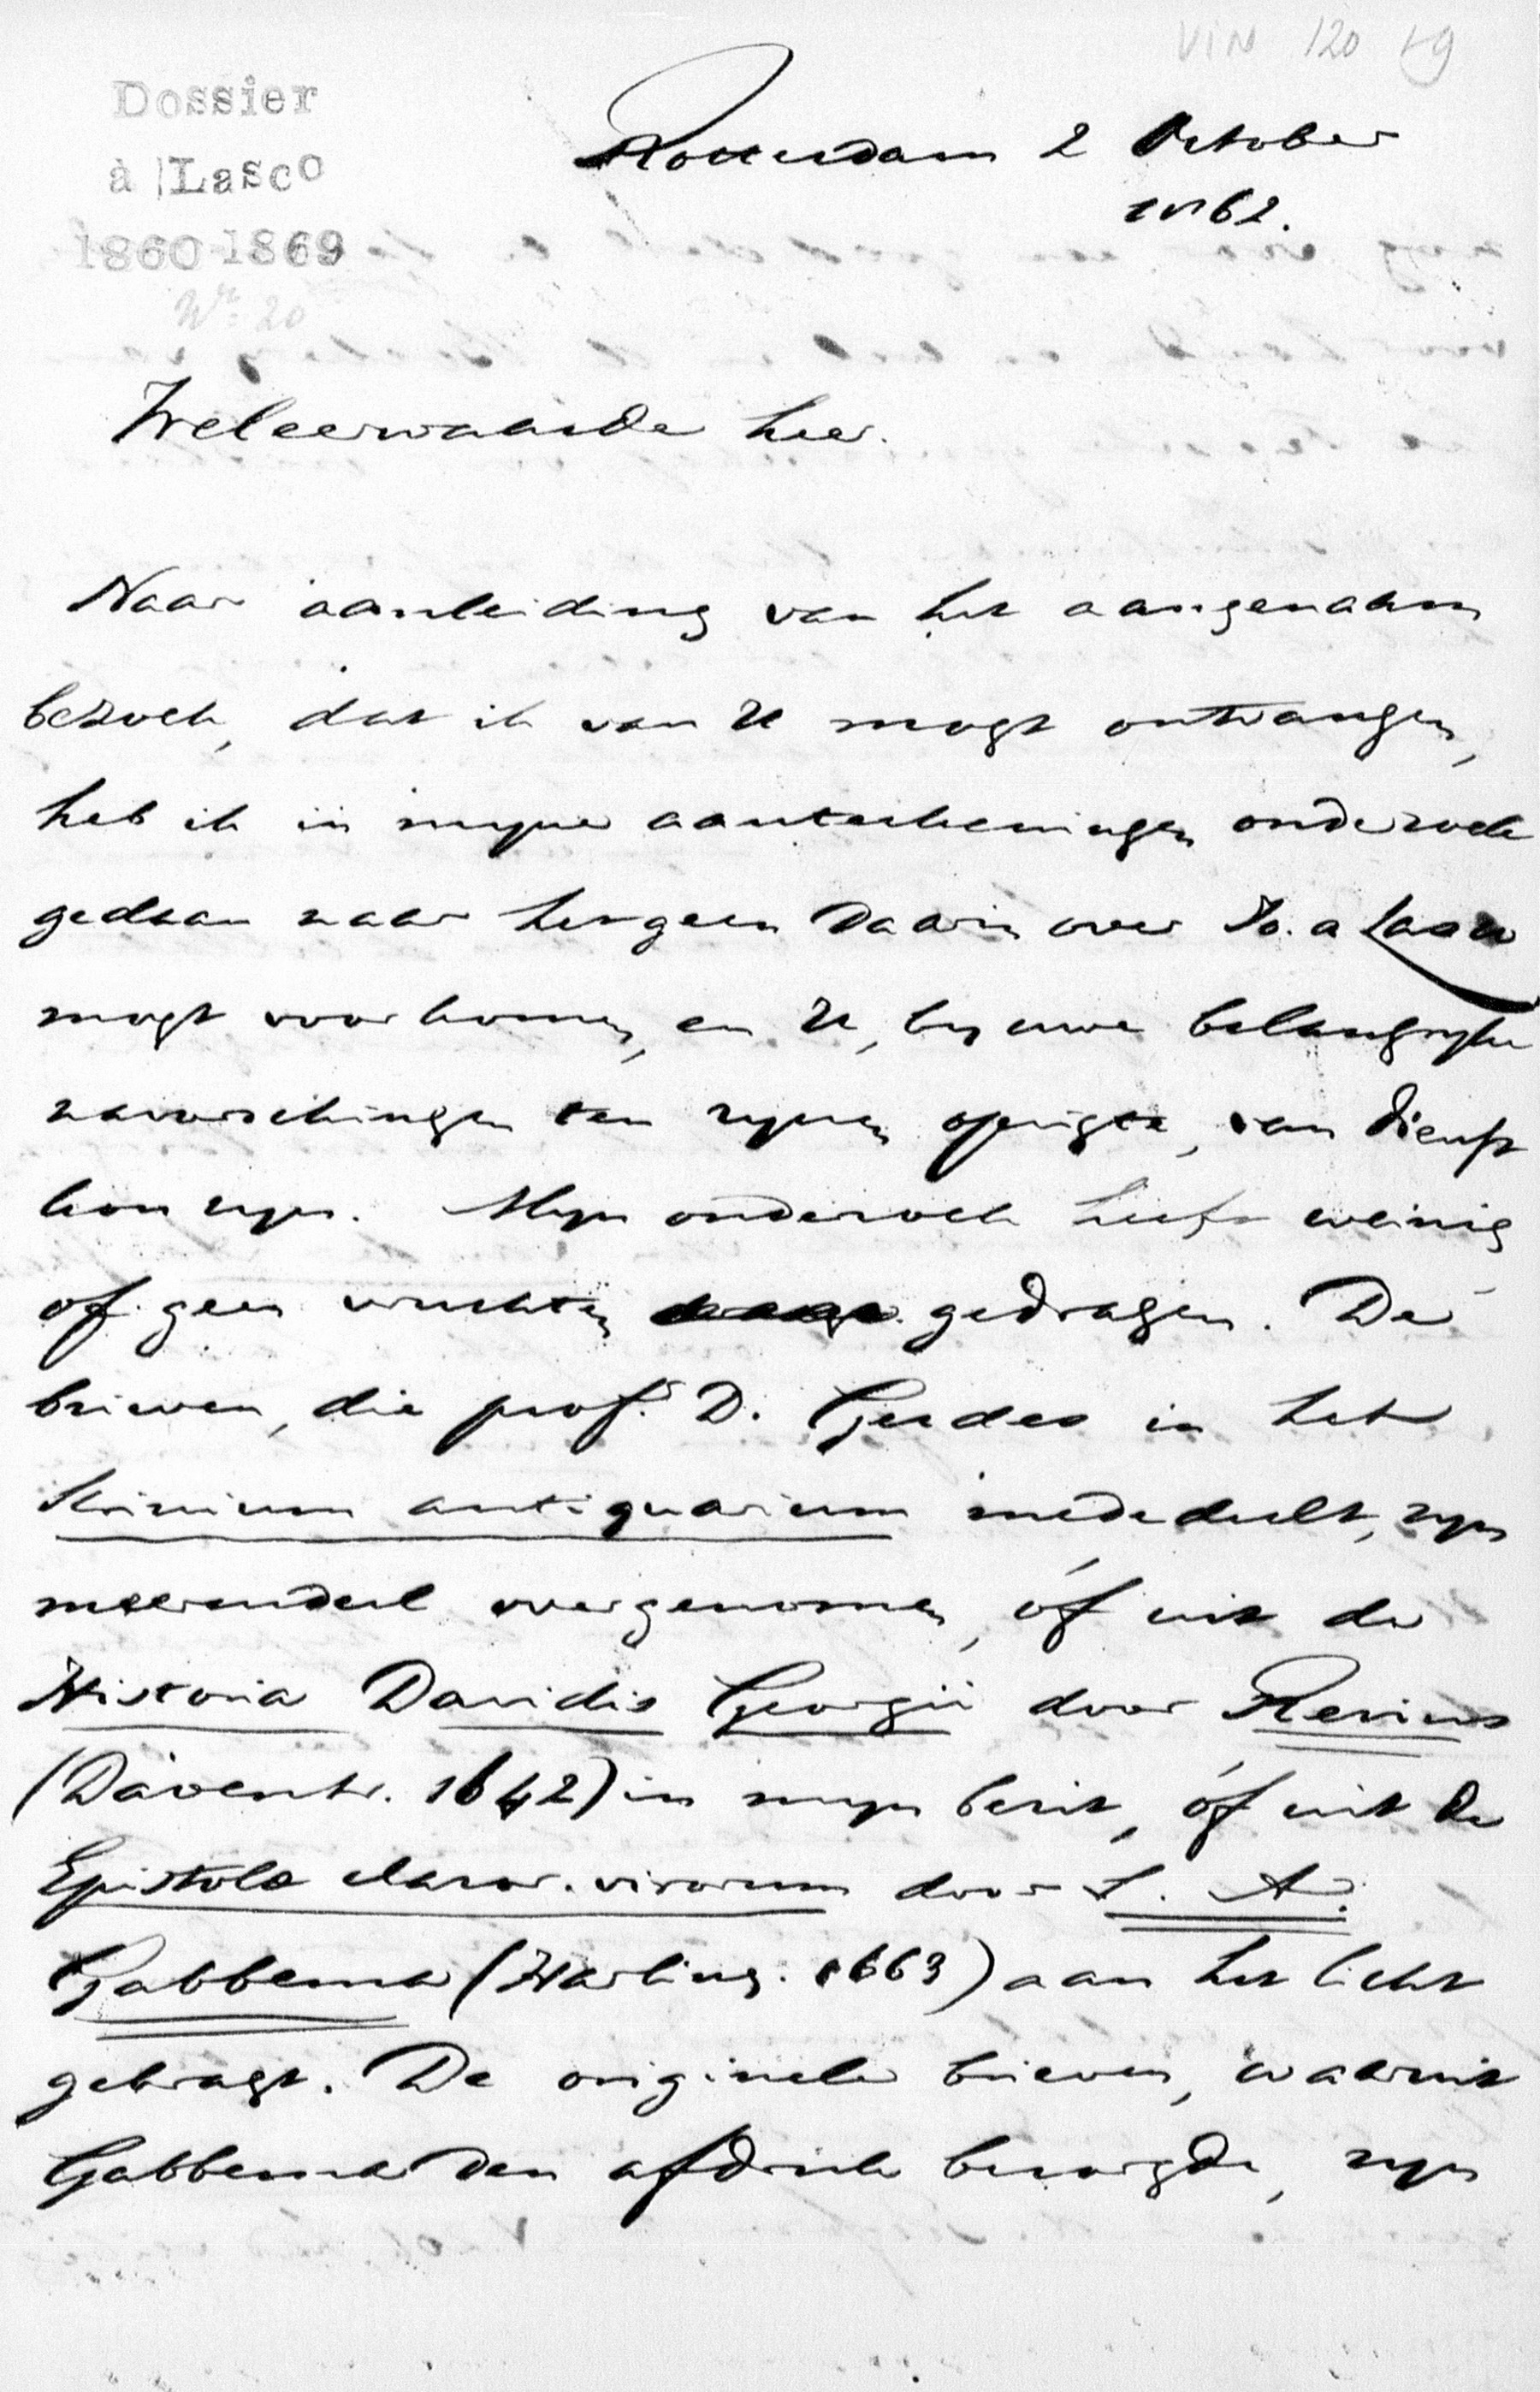 VIN 120 19
Dossier
à Lasco
1860-1869
No 20
Rotterdam 2 October
1862.
Weleerwaarde heer.
Naar aanleiding van het aangenaam
bezoek, dat ik van U mogt ontvangen,
heb ik in myne aanteekeningen onderzoek
gedaan naar hetgeen daarin over Jo. a Lasco
mogt voorkomen, en U, by uwe belangryke
navorschingen ten zynen opzigte, van dienst
kon zyn. Myn onderzoek heeft weinig
of geen vruchten gedragen. De
brieven, die prof. D. Gerdes in het
Scrinium antiquarium mededeelt, zyn
meerendeel overgenomen, óf uit de
Historia Davidis Georgii door Revius
(Daventr. 1642) in myn bezit, óf uit de
Epistolæ claror. virorum door S. A.
Gabbema (Harling. 1663) aan het licht
gebragt. De originele brieven, waaruit
Gabbema den afdruk bezorgde, zyn